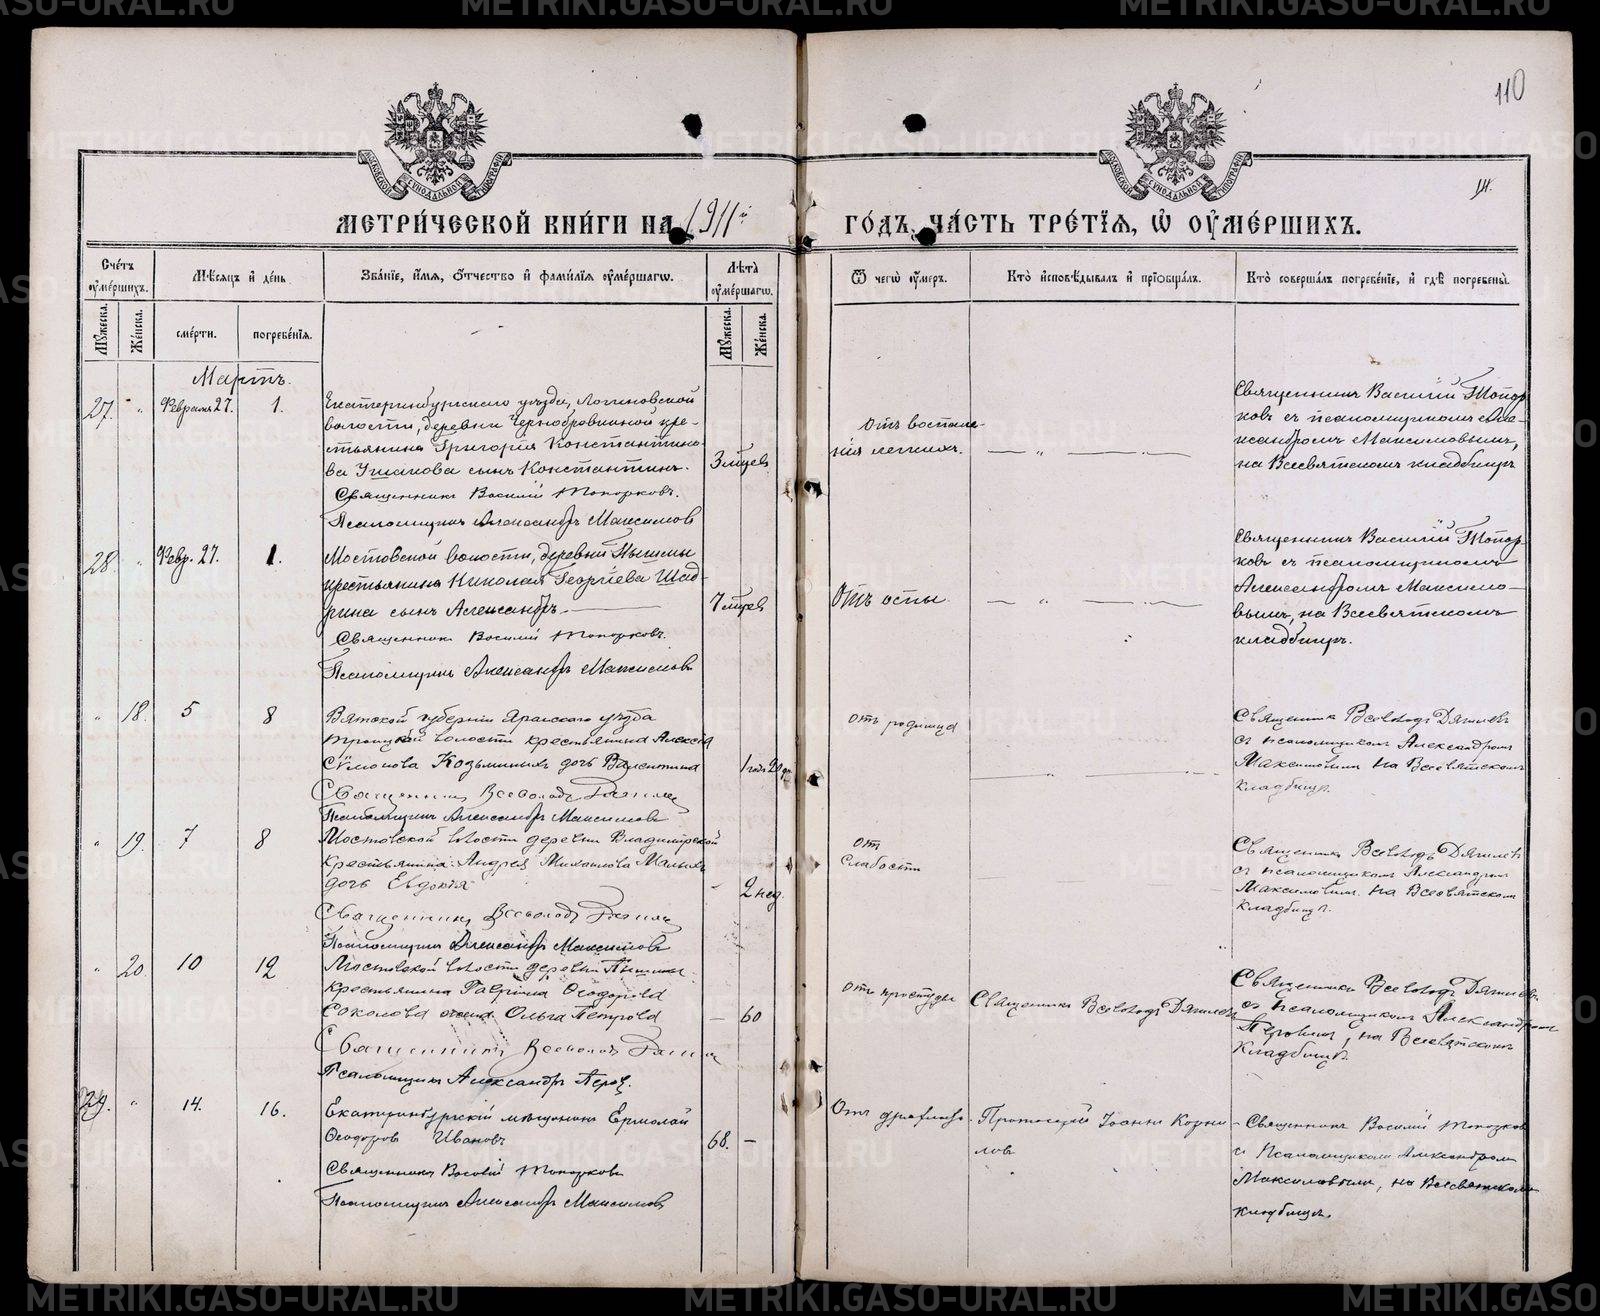 110
14.
МОСКОВСКОЙ СѴНОДАЛЬНОЙ ТИПОГРАФІИ
МОСКОВСКОЙ СѴНОДАЛЬНОЙ ТИПОГРАФІИ
МЕТРИ́ЧЕСКОЙ КНИ́ГИ НА 1911й ГО́ДЪ, ЧА́СТЬ ТРЕ́ТІѦ, Ѡ ОУМЕ́РШИХЪ.
Сче́тъ оуме́ршихъ.
Мѣ́сѧцъ и де́нь
Зва́ніе, и́мѧ, о́тчество и фами́лїѧ оуме́ршагѡ.
Лѣ́та оуме́ршагѡ.
Ѿ чегѡ̀ оу́меръ.
Кто̀ исповѣ́дывалъ и прїѡбща́лъ.
Кто̀ соверша́лъ погребе́нїе, и гдѣ̀ погребены̀.
Мꙋ́жеска.
Же́нска.
сме́рти.
погребе́нїѧ.
Мꙋ́жеска.
Же́нска.
Мартъ.
27. " Февраля 27. 1.
Екатеринбургскаго уѣзда, Логиновской
волости, деревни Чернобровкиной кре-
стьянина Григорія Константино-
ва Ушакова сынъ Константинъ.
3 мѣсев
Священникъ Василій Топорковъ.
Псаломщикъ Александръ Максимовъ
отъ воспале-
нія легкихъ.
— " — . —
Священникъ Василій Топор-
ковъ съ псаломщикомъ Але-
ксандромъ Максимовымъ,
на Всесвятскомъ кладбищѣ
28. " Февр. 27. 1.
Мостовской волости, деревни Пышмы
крестьянина Николая Георгіева Шад-
рина сынъ Александръ.
7 мѣсев
Священникъ Василій Топорковъ.
Псаломщикъ Александръ Максимовъ
Отъ оспы.
— " — . —
Священникъ Василій Топор-
ковъ съ псаломщикомъ
Александромъ Максимо-
вымъ, на Всесвятскомъ
кладбищѣ.
" 18. 5 8
Вятской губерніи Яранскаго уѣзда
Троицкой волости крестьянина Алексѣя
Сѵмонова Козьминыхъ дочь Валентина
1 годъ 20 дн
Священникъ Всеволодъ Дягилевъ
Псаломщикъ Александръ Максимовъ
отъ родимца
Священникъ Всеволодъ Дягилевъ
съ псаломщикомъ Александромъ
Максимовымъ на Всесвятскомъ
кладбищѣ.
" 19. 7 8
Мостовской волости деревни Владимірской
крестьянина Андрея Михаилова Малыхъ
дочь Евдокія
2 нед.
Священникъ Всеволодъ Дягилевъ
Псаломщикъ Александръ Максимовъ
отъ
слабости
Священникъ Всеволодъ Дягилевъ
съ псаломщикомъ Александромъ
Максимовымъ на Всесвятскомъ
кладбищѣ.
" 20. 10 12
Мостовской волости деревни Пышмы
крестьянина Гавріила Ѳеодорова
Соколова жена Ольга Петрова
— 60
Священникъ Всеволодъ Дягилевъ
Псаломщикъ Александръ Перов.
отъ простуды
Священникъ Всеволодъ Дягилевъ
Священникъ Всеволодъ Дягилевъ
съ псаломщикомъ Александромъ
Перовымъ, на Всесвятскомъ
кладбищѣ.
29. " 14. 16.
Екатеринбургскій мѣщанинъ Ермолай
Ѳеодоровъ Ивановъ
68. —
Священникъ Василій Топорковъ
Псаломщикъ Александръ Максимовъ
Отъ
Протоіерей Іоаннъ Корни-
ловъ
Священникъ Василій Топорковъ
съ Псаломщикомъ Александромъ
Максимовымъ, на Всесвятскомъ
кладбищѣ.
METRIKI.GASO-URAL.RU